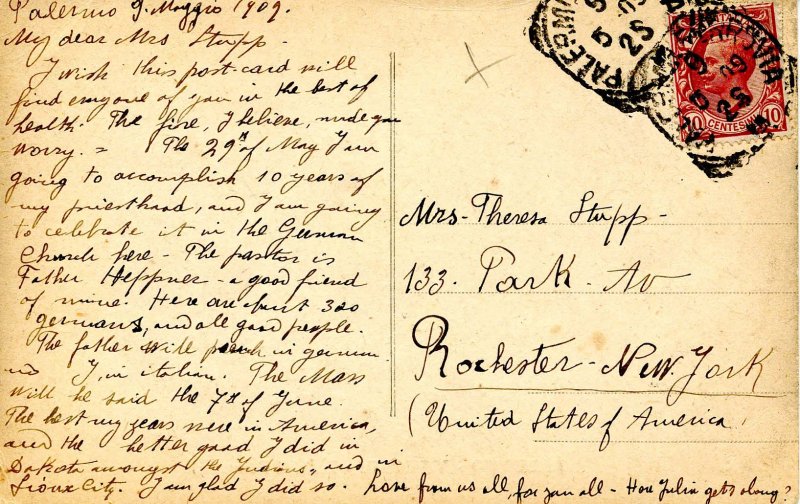 Palermo 9. Maggio 1909.
My dear Mrs Stupp -
I wish this post-card will
find everyone of you in the best of
health. The fire, I believe, made you
worry. = The 29th of May I am
going to accomplish 10 years of
my priesthood, and I am going
to celebrate it in the German
Church here - The pastor is
Father Heppner - a good friend
of mine. Here are about 300
germans, and all good people.
The father will preach in german
and I, in italian. The Mass
will be said the 7th of June.
The best my years were in America,
and the better good I did in
Dakota amongst the Indians, and in
Sioux City. I am glad I did so. Love from us all, for you all - How Julia gets along?
PALERMO
5 5
25
10 CENTESIMI 10
Mrs - Theresa Stupp -
133. Park - Av
Rochester - New. York
(United States of America